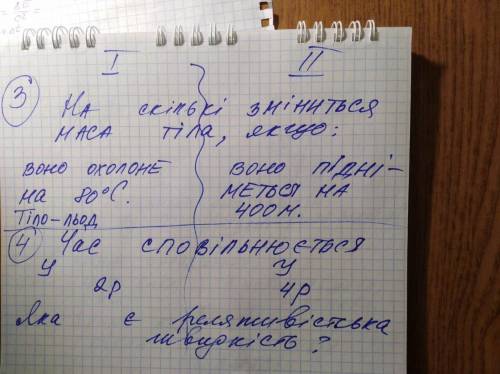 I II
③ На скількі зміниться
маса тіла, якщо:
воно охолоне воно підні-
на 80°C. меться на
Тіло-льод 400м.
④ Час сповільнюється
у у
2р 4р
Яка є релятивістська
швидкість?